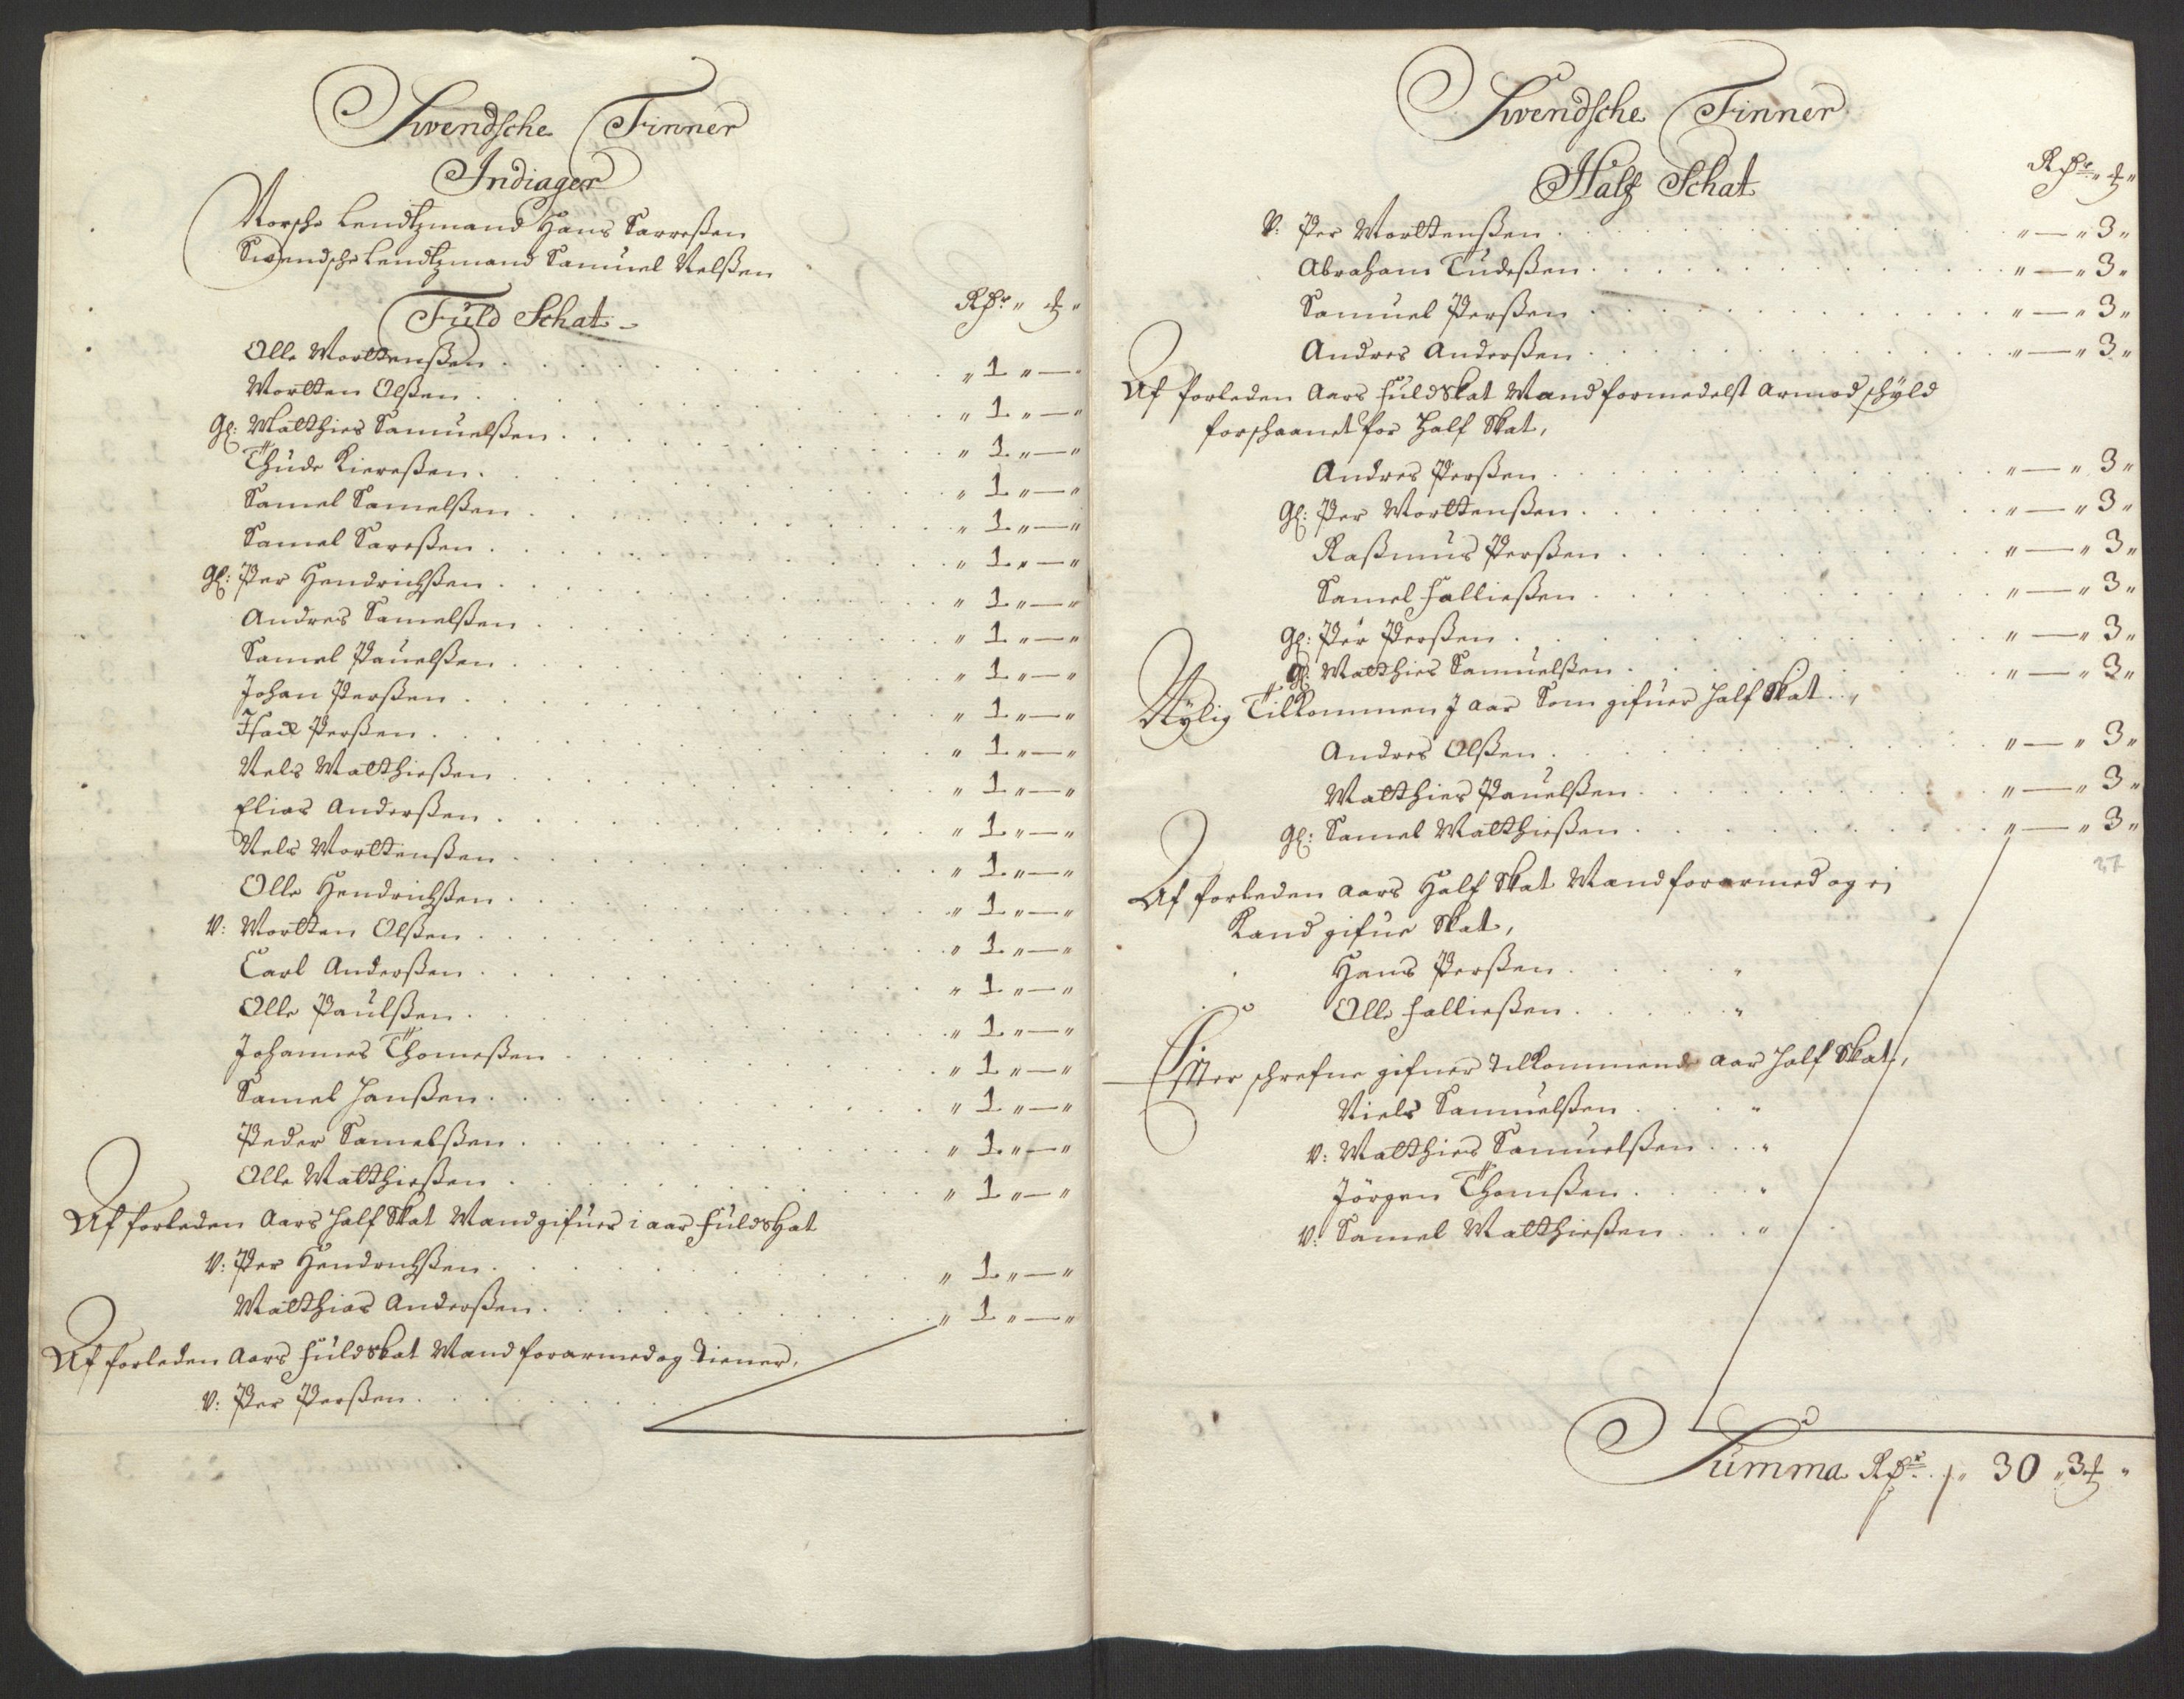 Swendsche Finner
Indiager
Norsche Lendtzmand Hans Sarreßen
Swendsche Lendtzmand Samuel Nelßen
Fuld Schat Rdr. " ort "
Olle Mortenßen . . . " 1 " — "
Morten Olßen . . . " 1 " — "
Gl: Matthies Samuelßen . . . " 1 " — "
Thude Kiereßen . . . " 1 " — "
Samel Samelßen . . . " 1 " — "
Samel Sareßen . . . " 1 " — "
Gl: Per Hendrichßen . . . " 1 " — "
Andres Samelßen . . . " 1 " — "
Samel Pauelßen . . . " 1 " — "
Johan Perßen . . . " 1 " — "
Isach Perßen . . . " 1 " — "
Nels Matthießen . . . " 1 " — "
Elias Anderßen . . . " 1 " — "
Nels Mortenßen . . . " 1 " — "
Olle Hendrichßen . . . " 1 " — "
V: Morten Olßen . . . " 1 " — "
Carl Anderßen . . . " 1 " — "
Olle Paulßen . . . " 1 " — "
Johannes Thomeßen . . . " 1 " — "
Samel Hanßen . . . " 1 " — "
Peder Samelßen . . . " 1 " — "
Olle Matthießen . . . " 1 " — "
Af forleden Aars half Skat Mand gifuer i aar fuld skat
V: Per Hendrichßen . . . " 1 " — "
Matthias Anderßen . . . " 1 " — "
Af forleden Aars fuld skat Mand forarmed og tiener,
V: Per Perßen . . .
Swendsche Finner
Half Schat Rdr. " ort "
V: Per Mortenßen . . . " — " 3 "
Abraham Tudeßen . . . " — " 3 "
Samuel Perßen . . . " — " 3 "
Andres Anderßen . . . " — " 3 "
Af forleden Aars fuld skat Mand formedelst armod schyld
forschaanet for half Skat,
Andres Perßen . . . " — " 3 "
Gl: Per Mortenßen . . . " — " 3 "
Raßmus Perßen . . . " — " 3 "
Samel Falließen . . . " — " 3 "
Gl: Per Perßen . . . " — " 3 "
Gl: Matthies Samuelßen . . . " — " 3 "
Nylig Tilkommen J aar Som gifuer half Skat . . "
Andres Olßen . . . " — " 3 "
Matthies Pauelßen . . . " — " 3 "
Gl: Samel Matthießen . . . " — " 3 "
27
Af forleden aars Half Skat Mand forarmed og ei
Kand gifue Skat,
Hans Perßen . . . "
Olle Falließen . . . "
Efter schrefne gifuer tilkommende aar half Skat,
Niels Samuelßen . . . "
V: Matthies Samuelßen . . . "
Jörgen Thomßen . . . "
V: Samel Matthießen . . . "
Summa Rdr. " 30 " 3 ort "